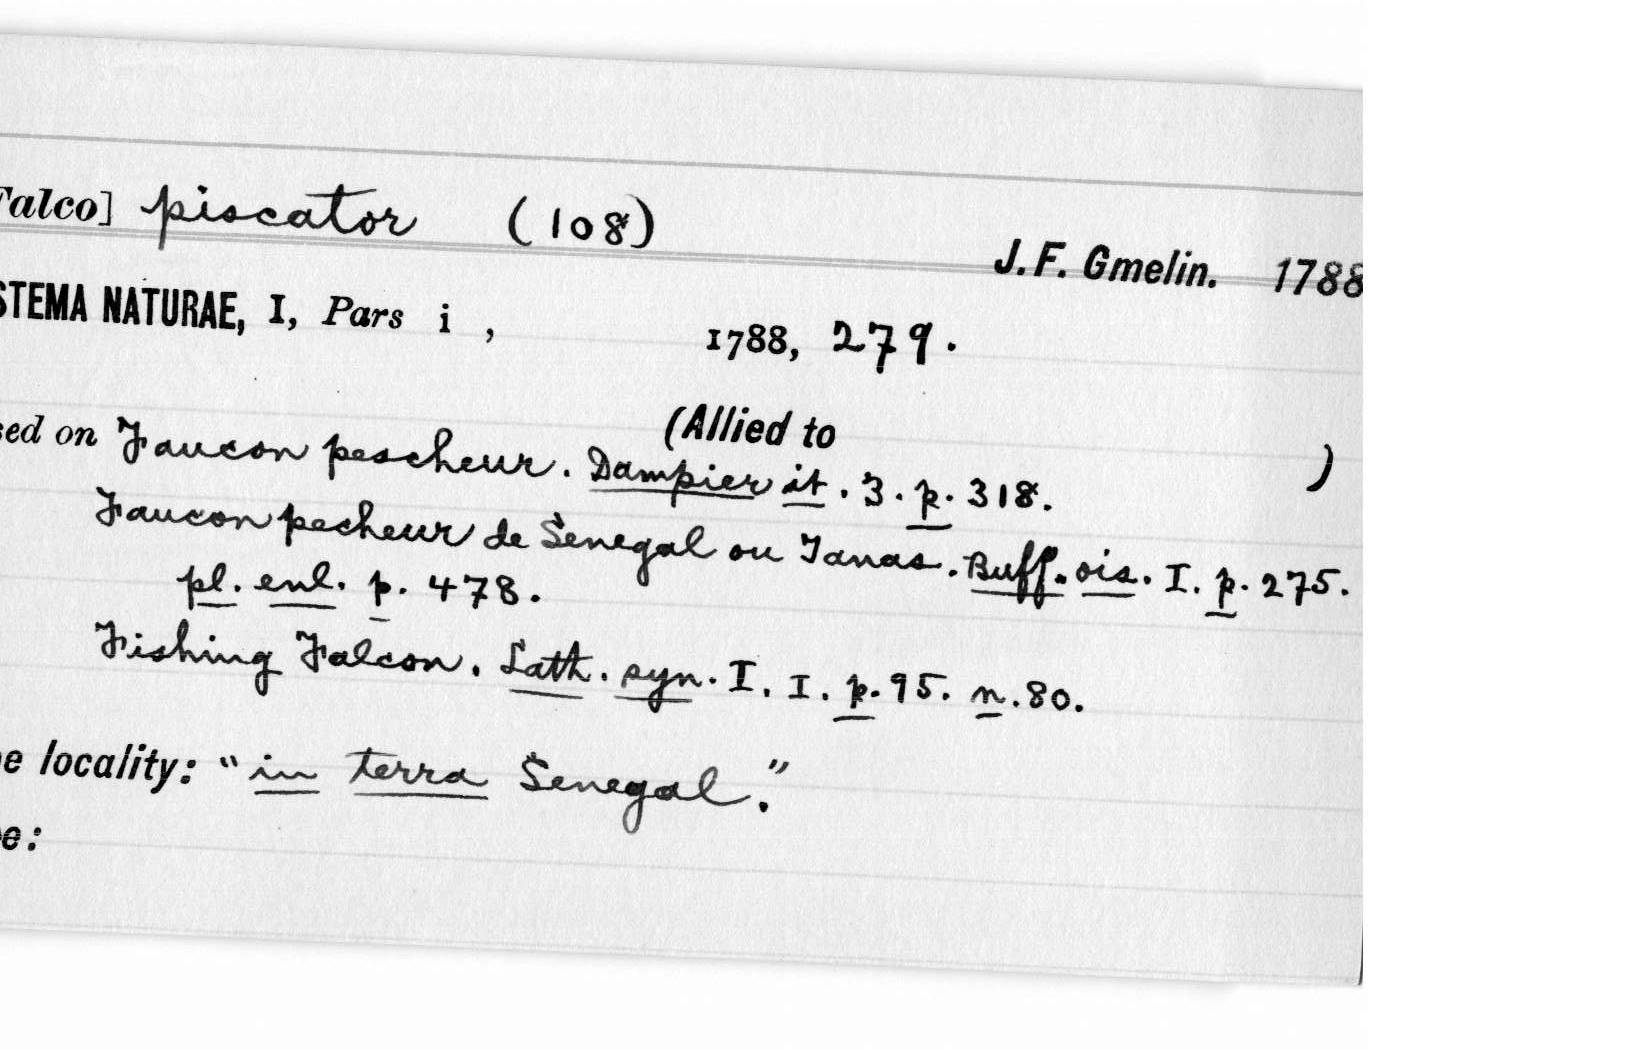 Falco] piscator (108)
J. F. Gmelin. 1788
STEMA NATURAE, I, Pars i , 1788, 279.
(Allied to )
sed on Faucon pescheur. Dampier it. 3. p. 318.
Faucon pecheur de Senegal ou Tanas. Buff. ois. I. p. 275.
pl. enl. p. 478.
Fishing Falcon. Lath. syn. I. I. p. 95. n. 80.
e locality: "in terra Senegal."
e: